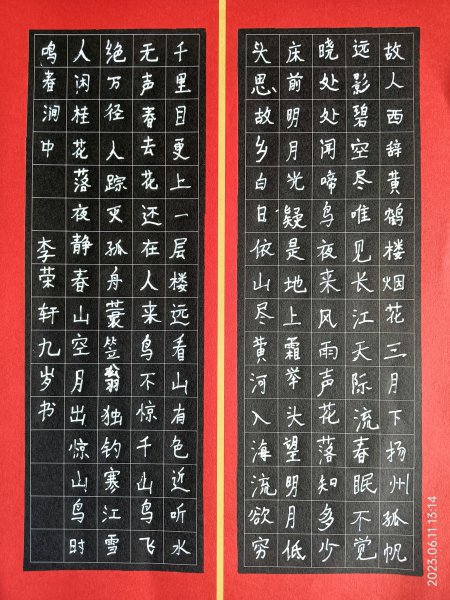 故人西辞黄鹤楼烟花三月下扬州孤帆
远影碧空尽唯见长江天际流春眠不觉
晓处处闻啼鸟夜来风雨声花落知多少
床前明月光疑是地上霜举头望明月低
头思故乡白日依山尽黄河入海流欲穷
千里目更上一层楼远看山有色近听水
无声春去花还在人来鸟不惊千山鸟飞
绝万径人踪灭孤舟蓑笠翁独钓寒江雪
人闲桂花落夜静春山空月出惊山鸟时
鸣春涧中 李荣轩九岁书
2023.06.11 13:14